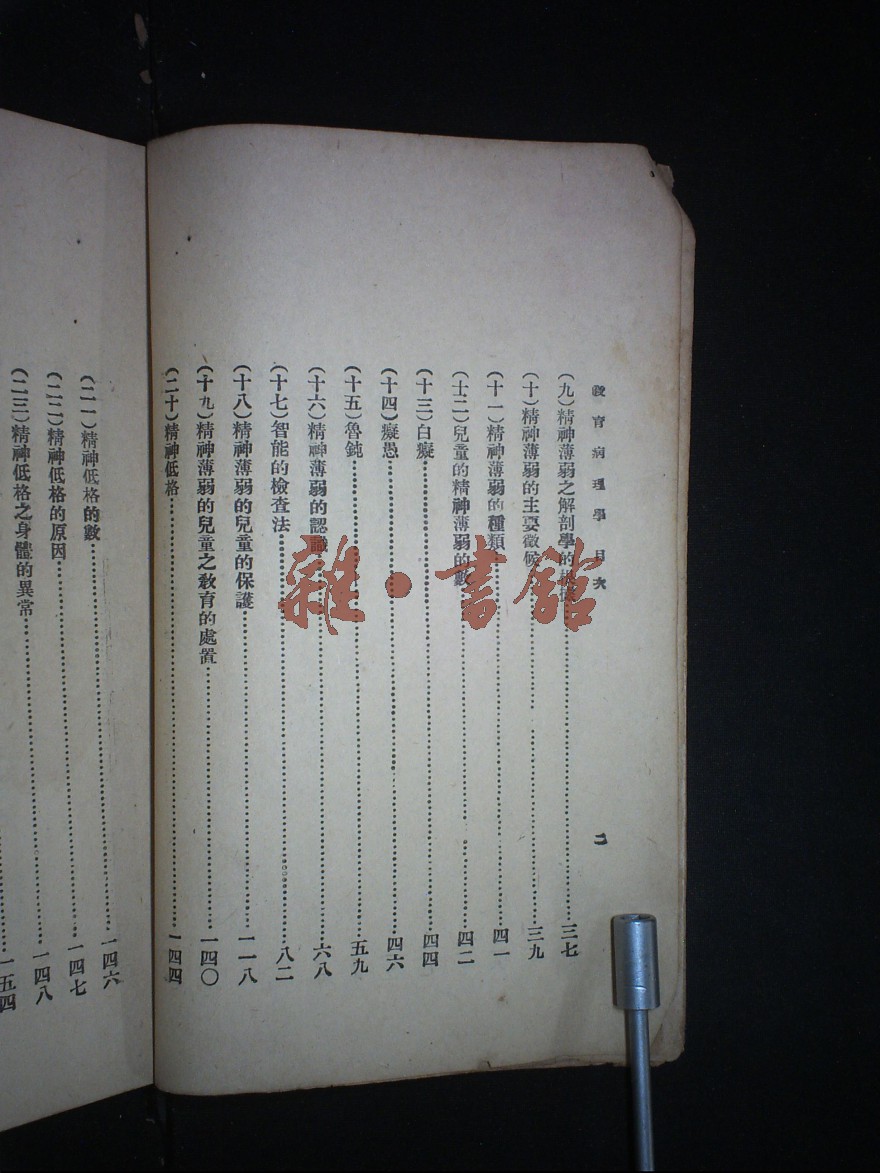 教育病理學 目次 二
(九)精神薄弱之解剖學的……三七
(十)精神薄弱的主要徵候……三九
(十一)精神薄弱的種類……四一
(十二)兒童的精神薄弱的數……四二
(十三)白癡……四四
(十四)癡愚……四六
(十五)魯鈍……五九
(十六)精神薄弱的認識……六八
(十七)智能的檢查法……八二
(十八)精神薄弱的兒童的保護……一一八
(十九)精神薄弱的兒童之教育的處置……一四〇
(二十)精神低格……一四四
(二一)精神低格的數……一四六
(二二)精神低格的原因……一四七
(二三)精神低格之身體的異常……一四八
一五四
雜·書館